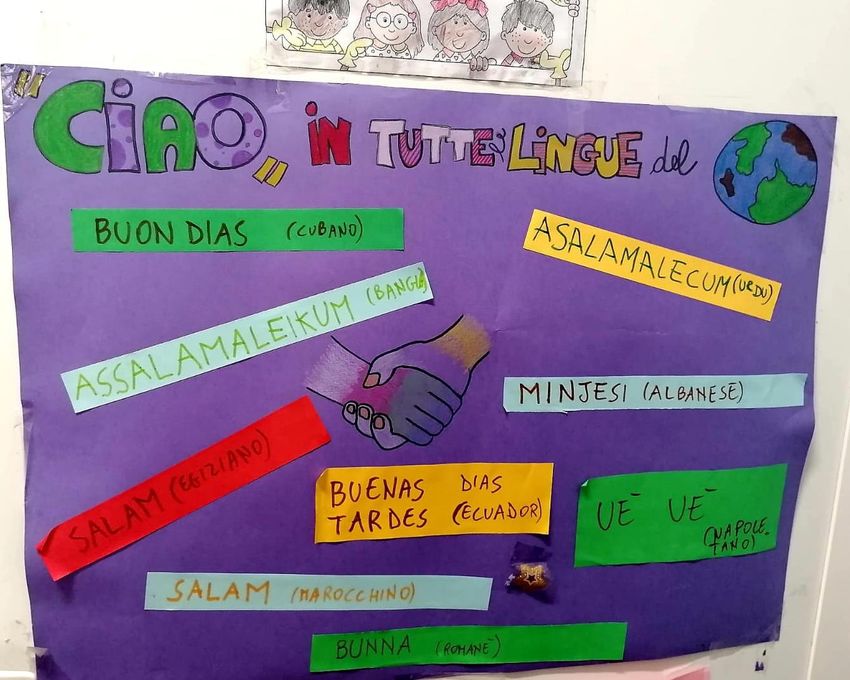 "CIAO" IN TUTTE LE LINGUE del
BUON DIAS (CUBANO)
ASALAMALECUM (URDU)
ASSALAMALEIKUM (BANGLA)
MINJESI (ALBANESE)
SALAM (EGIZIANO)
BUENAS DIAS
TARDES (ECUADOR)
UÈ UÈ
(NAPOLE-
TANO)
SALAM (MAROCCHINO)
BUNNA (ROMANÈ)